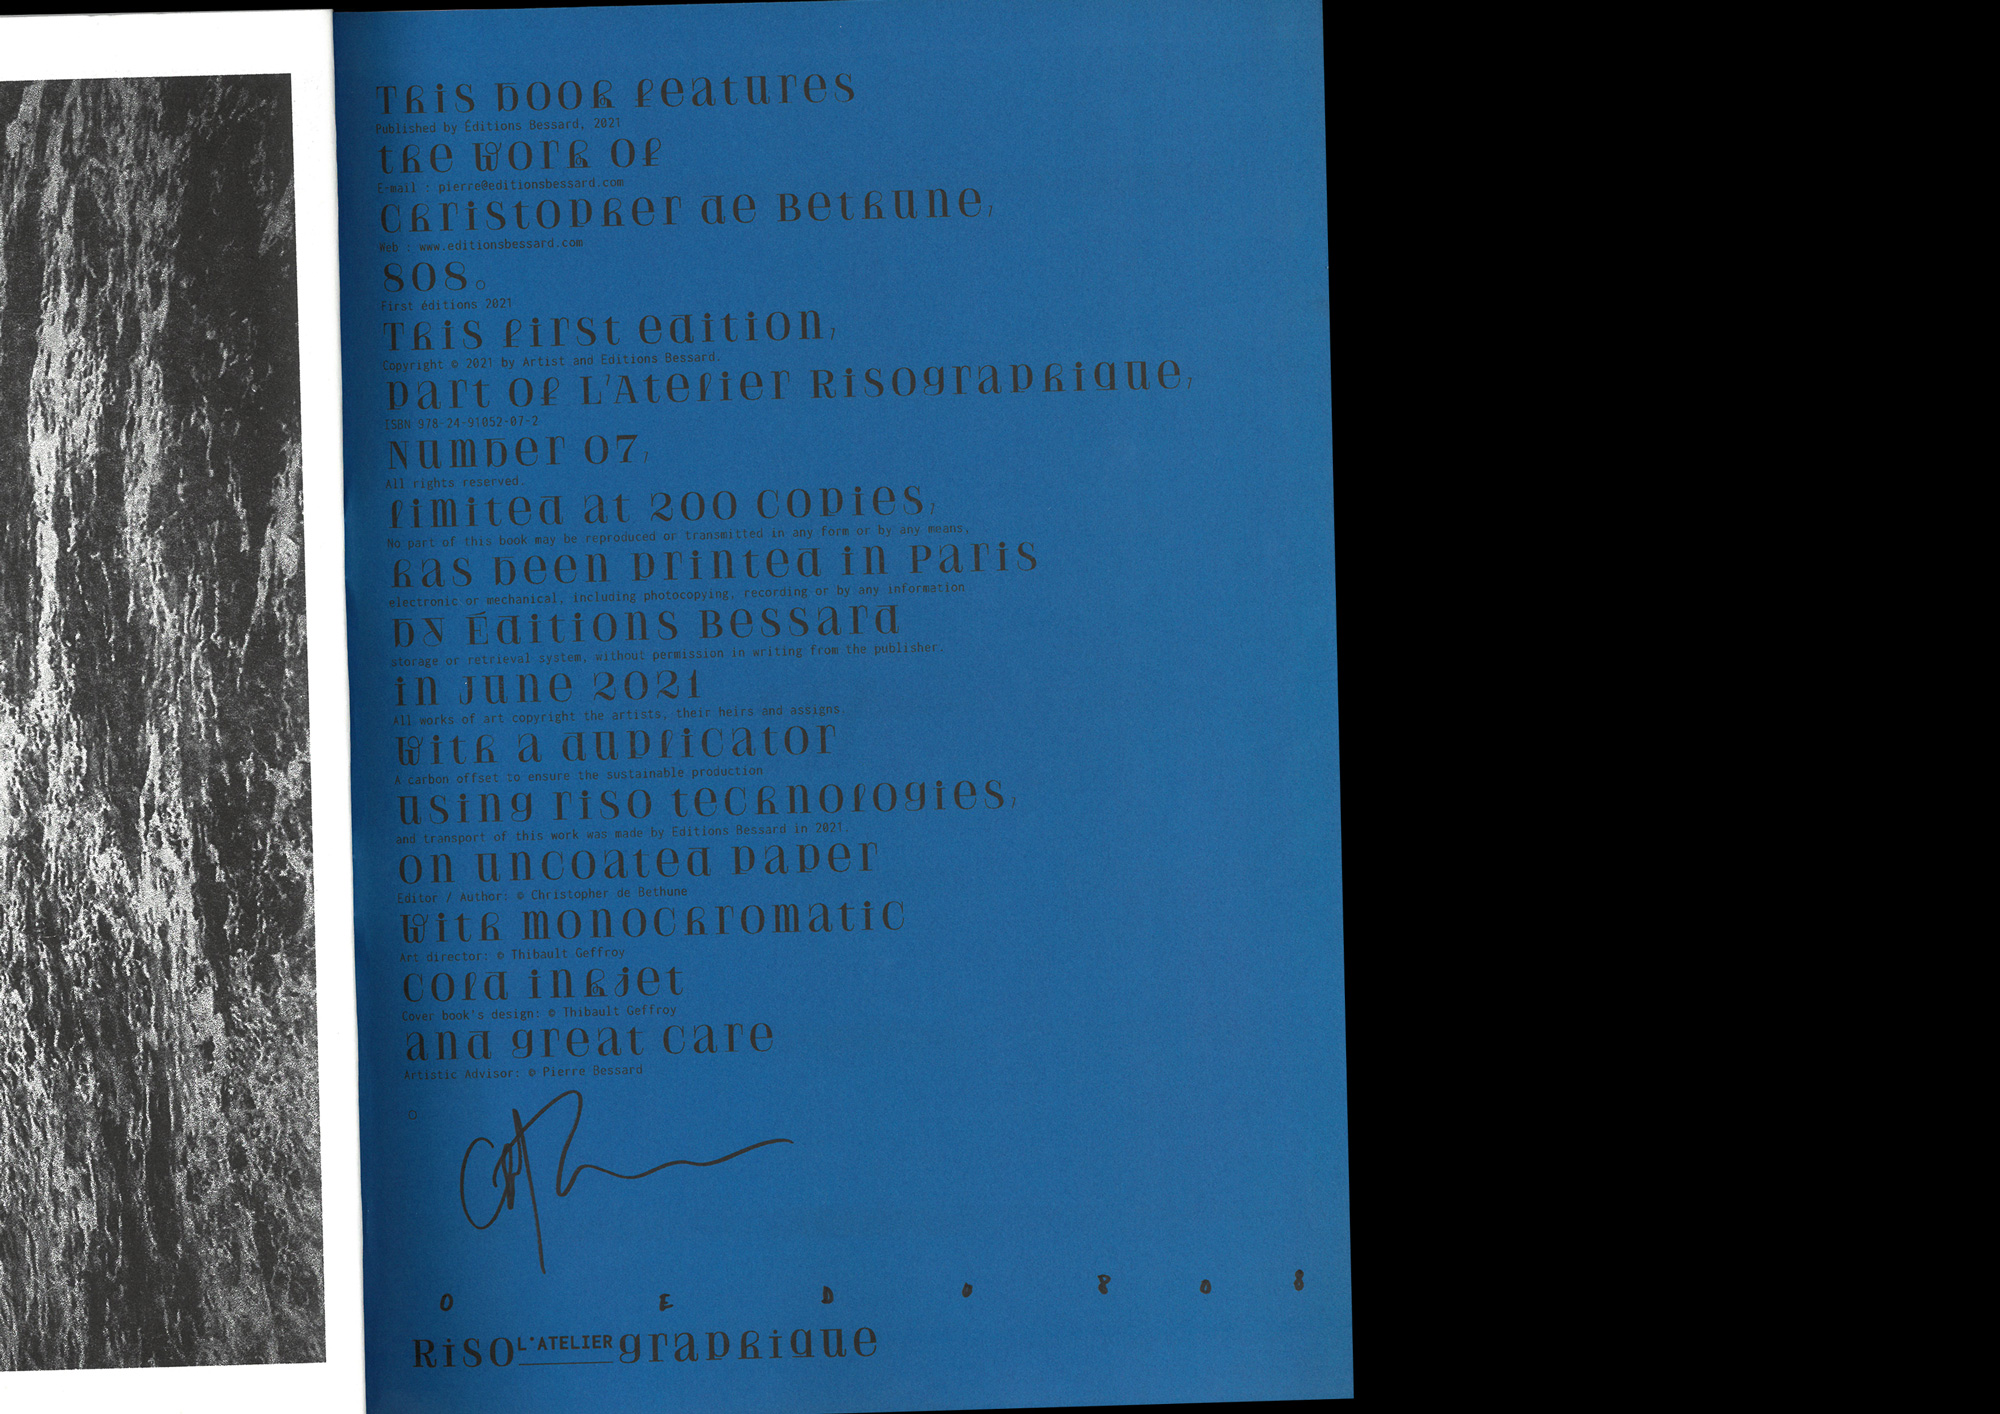 This book features
Published by Éditions Bessard, 2021
the work of
E-mail : pierre@editionsbessard.com
Christopher de Bethune,
Web : www.editionsbessard.com
808.
First éditions 2021
This first edition,
Copyright © 2021 by Artist and Editions Bessard.
part of L'Atelier Risographique,
ISBN 978-24-91052-07-2
Number 07,
All rights reserved.
limited at 200 copies,
No part of this book may be reproduced or transmitted in any form or by any means,
has been printed in Paris
electronic or mechanical, including photocopying, recording or by any information
by Éditions Bessard
storage or retrieval system, without permission in writing from the publisher.
in June 2021
All works of art copyright the artists, their heirs and assigns.
with a duplicator
A carbon offset to ensure the sustainable production
using riso technologies,
and transport of this work was made by Editions Bessard in 2021.
on uncoated paper
Editor / Author: © Christopher de Bethune
with monochromatic
Art director: © Thibault Geffroy
cold inkjet
Cover book's design: © Thibault Geffroy
and great care
Artistic Advisor: © Pierre Bessard
O E D O 8 0 8
Riso L'ATELIER graphique